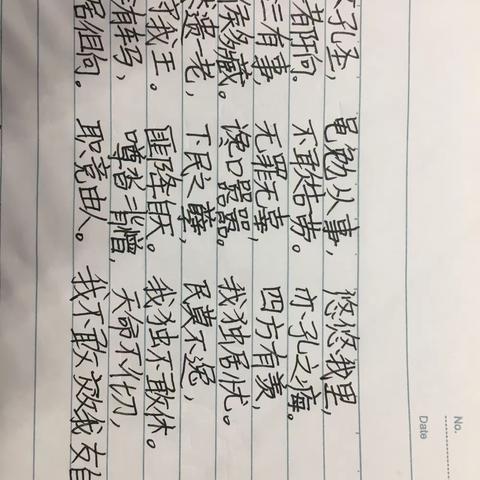 孔圣, 黾勉从事, 悠悠我里,
都于向。 不敢告劳。 亦孔之痗。
三有事, 无罪无辜, 四方有羡,
侯多藏。 谗口嚣嚣。 我独居忧。
遗一老, 下民之孽, 民莫不逸,
守我王。 匪降自天。 我独不敢休。
有车马, 噂沓背憎, 天命不彻,
居徂向。 职竞由人。 我不敢效我友自
No.
Date